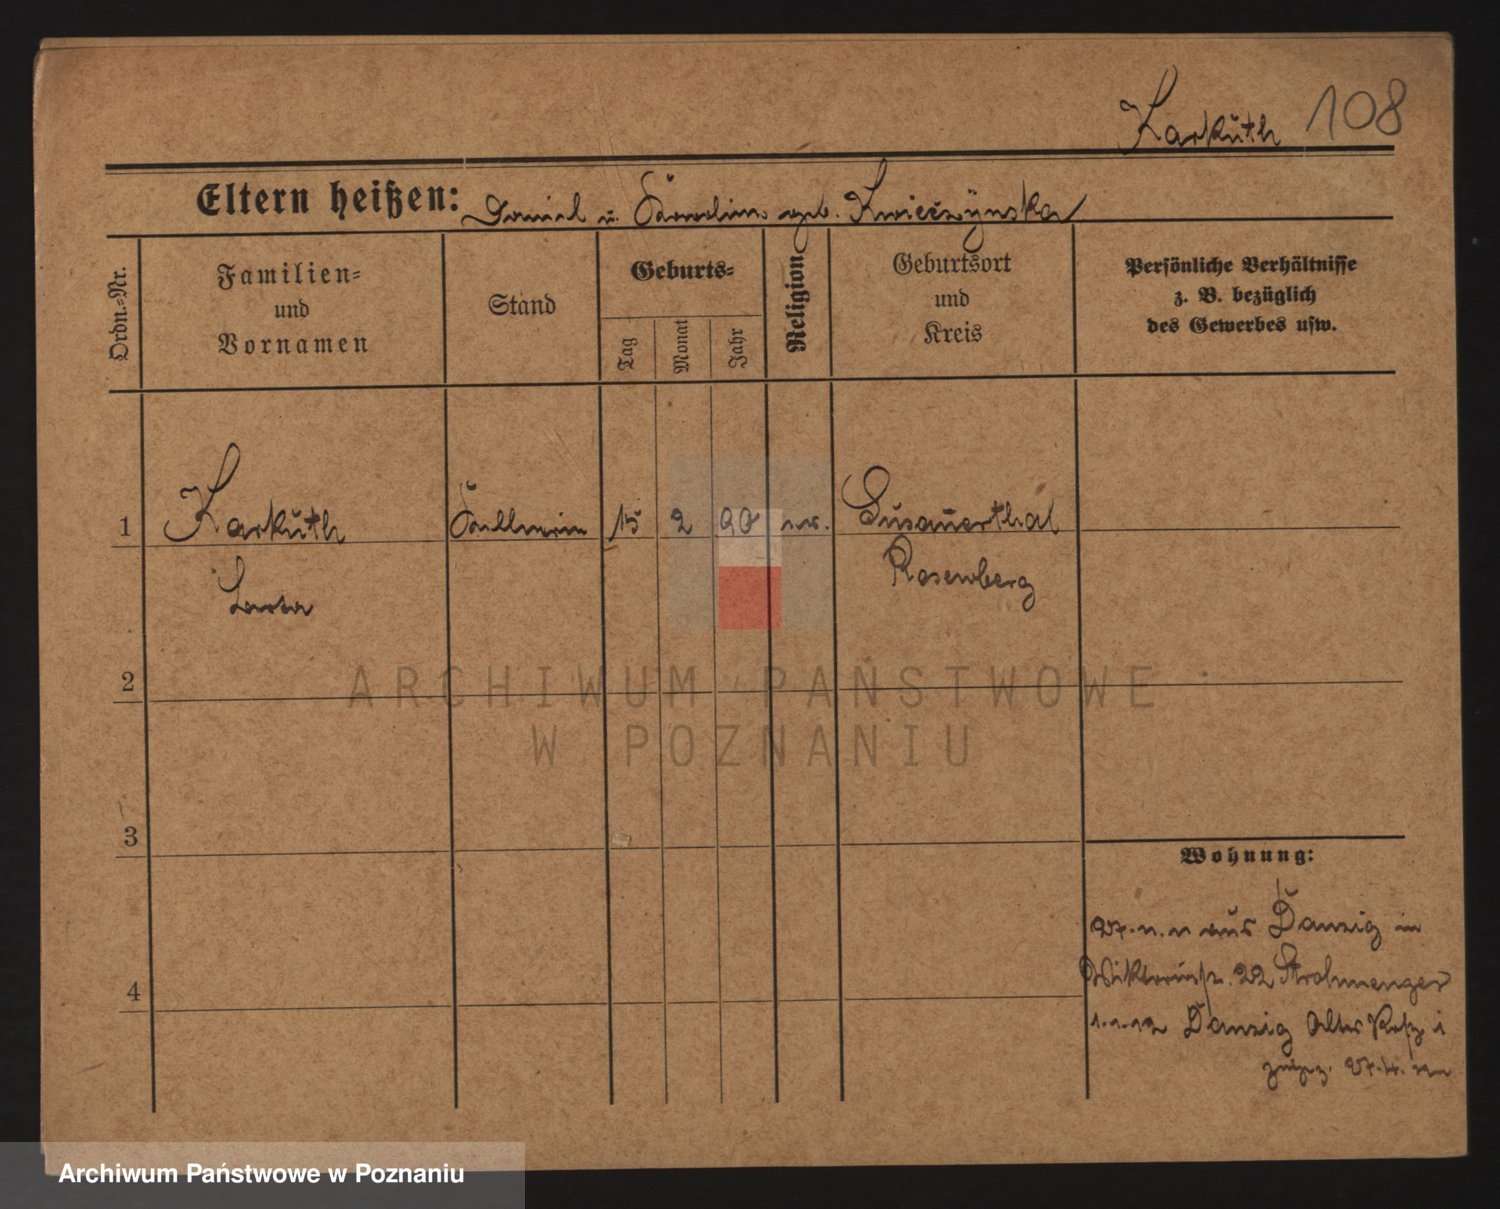 Karkuth 108
Eltern heißen: Daniel u. Karoline geb. Kwieczynska
Ordn.-Nr.
Familien-
und
Vornamen
Stand
Geburts-
Tag
Monat
Jahr
Religion
Geburtsort
und
Kreis
Persönliche Verhältnisse
z. B. bezüglich
des Gewerbes usw.
1 Karkuth Kellnerin 15 2 90 ev. Susauerthal
Rosenberg
2
ARCHIWUM PAŃSTWOWE
W POZNANIU
3
Wohnung:
aus Danzig in
22 Strohmenger
Danzig
4
Archiwum Państwowe w Poznaniu